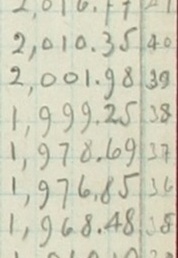 2,010.35 40
2,001.98 39
1,999.25 38
1,978.69 37
1,976.85 36
1,968.48 35